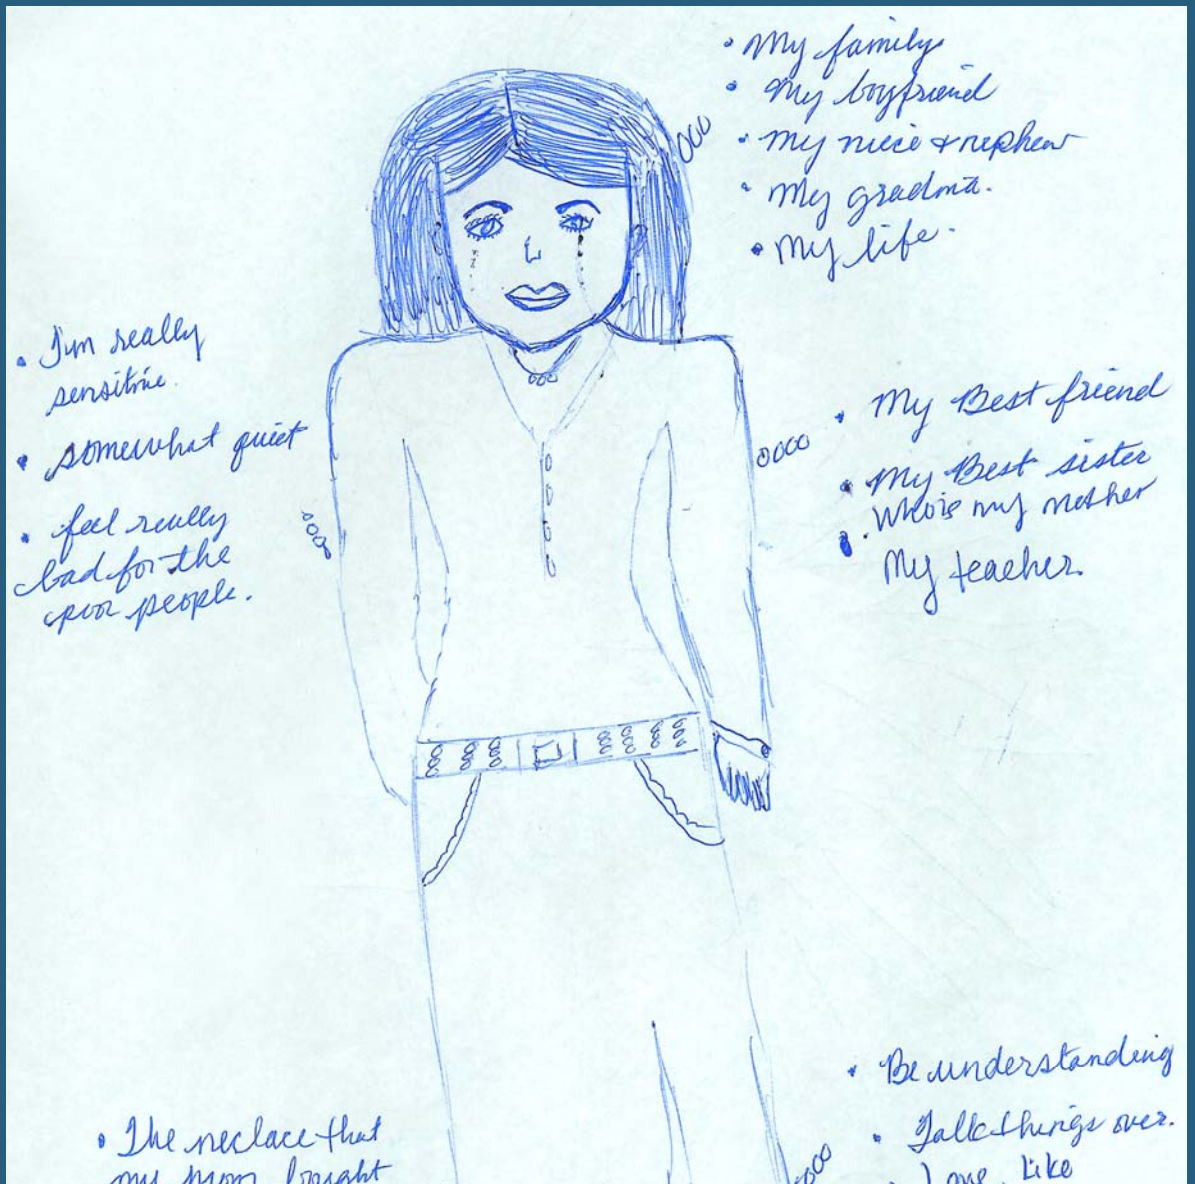 • My family
• My boyfriend
• my niece & nephew
• My gradma.
• My life.
• I'm really
sensitive.
• somewhat quiet
• feel really
bad for the
poor people.
• My Best friend
• My Best sister
• Who's my mother
My teacher.
• Be understanding
• Talk things over.
• Love, like
• The neclace that
my mom bought